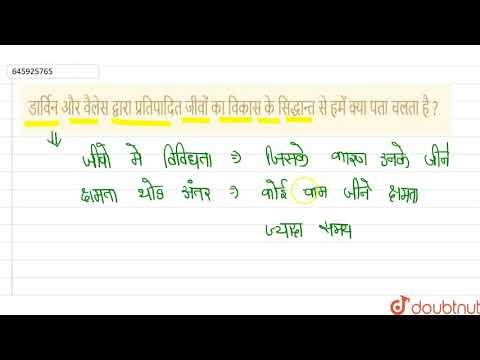 645925765
डार्विन और वैलेस द्वारा प्रतिपादित जीवों का विकास के सिद्धान्त से हमें क्या पता चलता है ?
जीवो में विविधता ⇒ जिसके कारण उनके जीने
क्षमता थोड अंतर ⇒ कोई पाम जीने क्षमता
ज्यादा समय
doubtnut